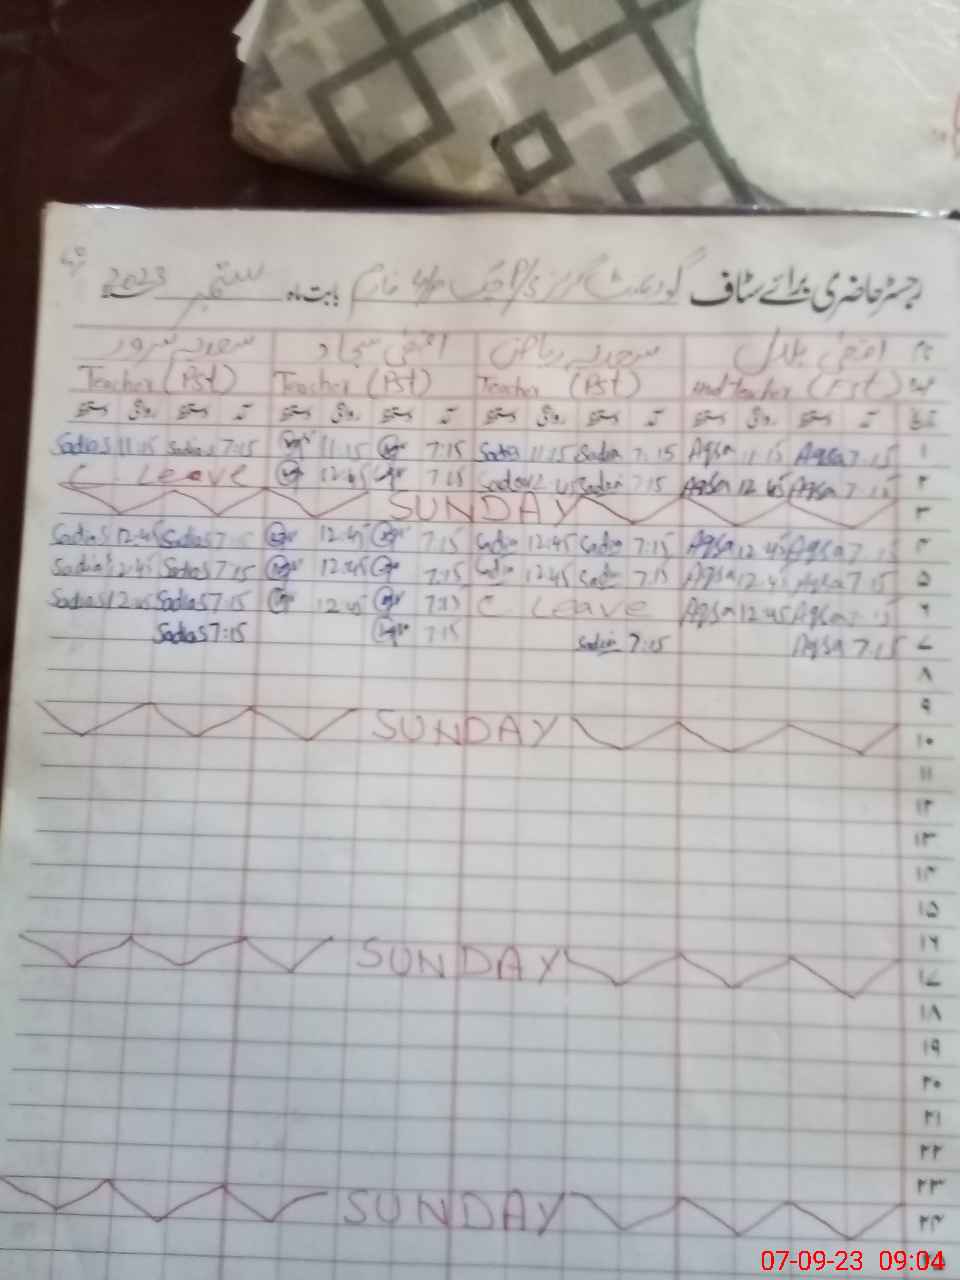 رجسٹر حاضری برائے سٹاف گورنمنٹ گرلز پ/س چک فارم بابت ماہ ستمبر 2023
نام اقصیٰ بلال سعدیہ ریاض اقصیٰ سجاد سعدیہ سرور
Head teacher (Est) Teacher (Pst) Teacher (Pst) Teacher (Pst)
تاریخ آمد دستخط روانگی دستخط آمد دستخط روانگی دستخط آمد دستخط روانگی دستخط آمد دستخط روانگی دستخط
SadiaS 11:15 SadiaS 7:15 11:15 7:15 Sadia 11:15 Sadia 7:15 Aqsa 11:15 Aqsa 7:15 ۱
C Leave 12:45 7:15 Sadia 12:45 Sadia 7:15 Aqsa 12:45 Aqsa 7:15 ۲
SUNDAY ۳
SadiaS 12:45 SadiaS 7:15 12:45 7:15 Sadia 12:45 Sadia 7:15 Aqsa 12:45 Aqsa 7:15 ۴
SadiaS 12:45 SadiaS 7:15 12:45 7:15 Sadia 12:45 Sadia 7:15 Aqsa 12:45 Aqsa 7:15 ۵
SadiaS 12:45 SadiaS 7:15 12:45 7:15 C Leave Aqsa 12:45 Aqsa 7:15 ۶
SadiaS 7:15 7:15 Sadia 7:15 Aqsa 7:15 ۷
۸
۹
SUNDAY ۱۰
۱۱
۱۲
۱۳
۱۴
۱۵
۱۶
SUNDAY ۱۷
۱۸
۱۹
۲۰
۲۱
۲۲
۲۳
SUNDAY ۲۴
07-09-23 09:04